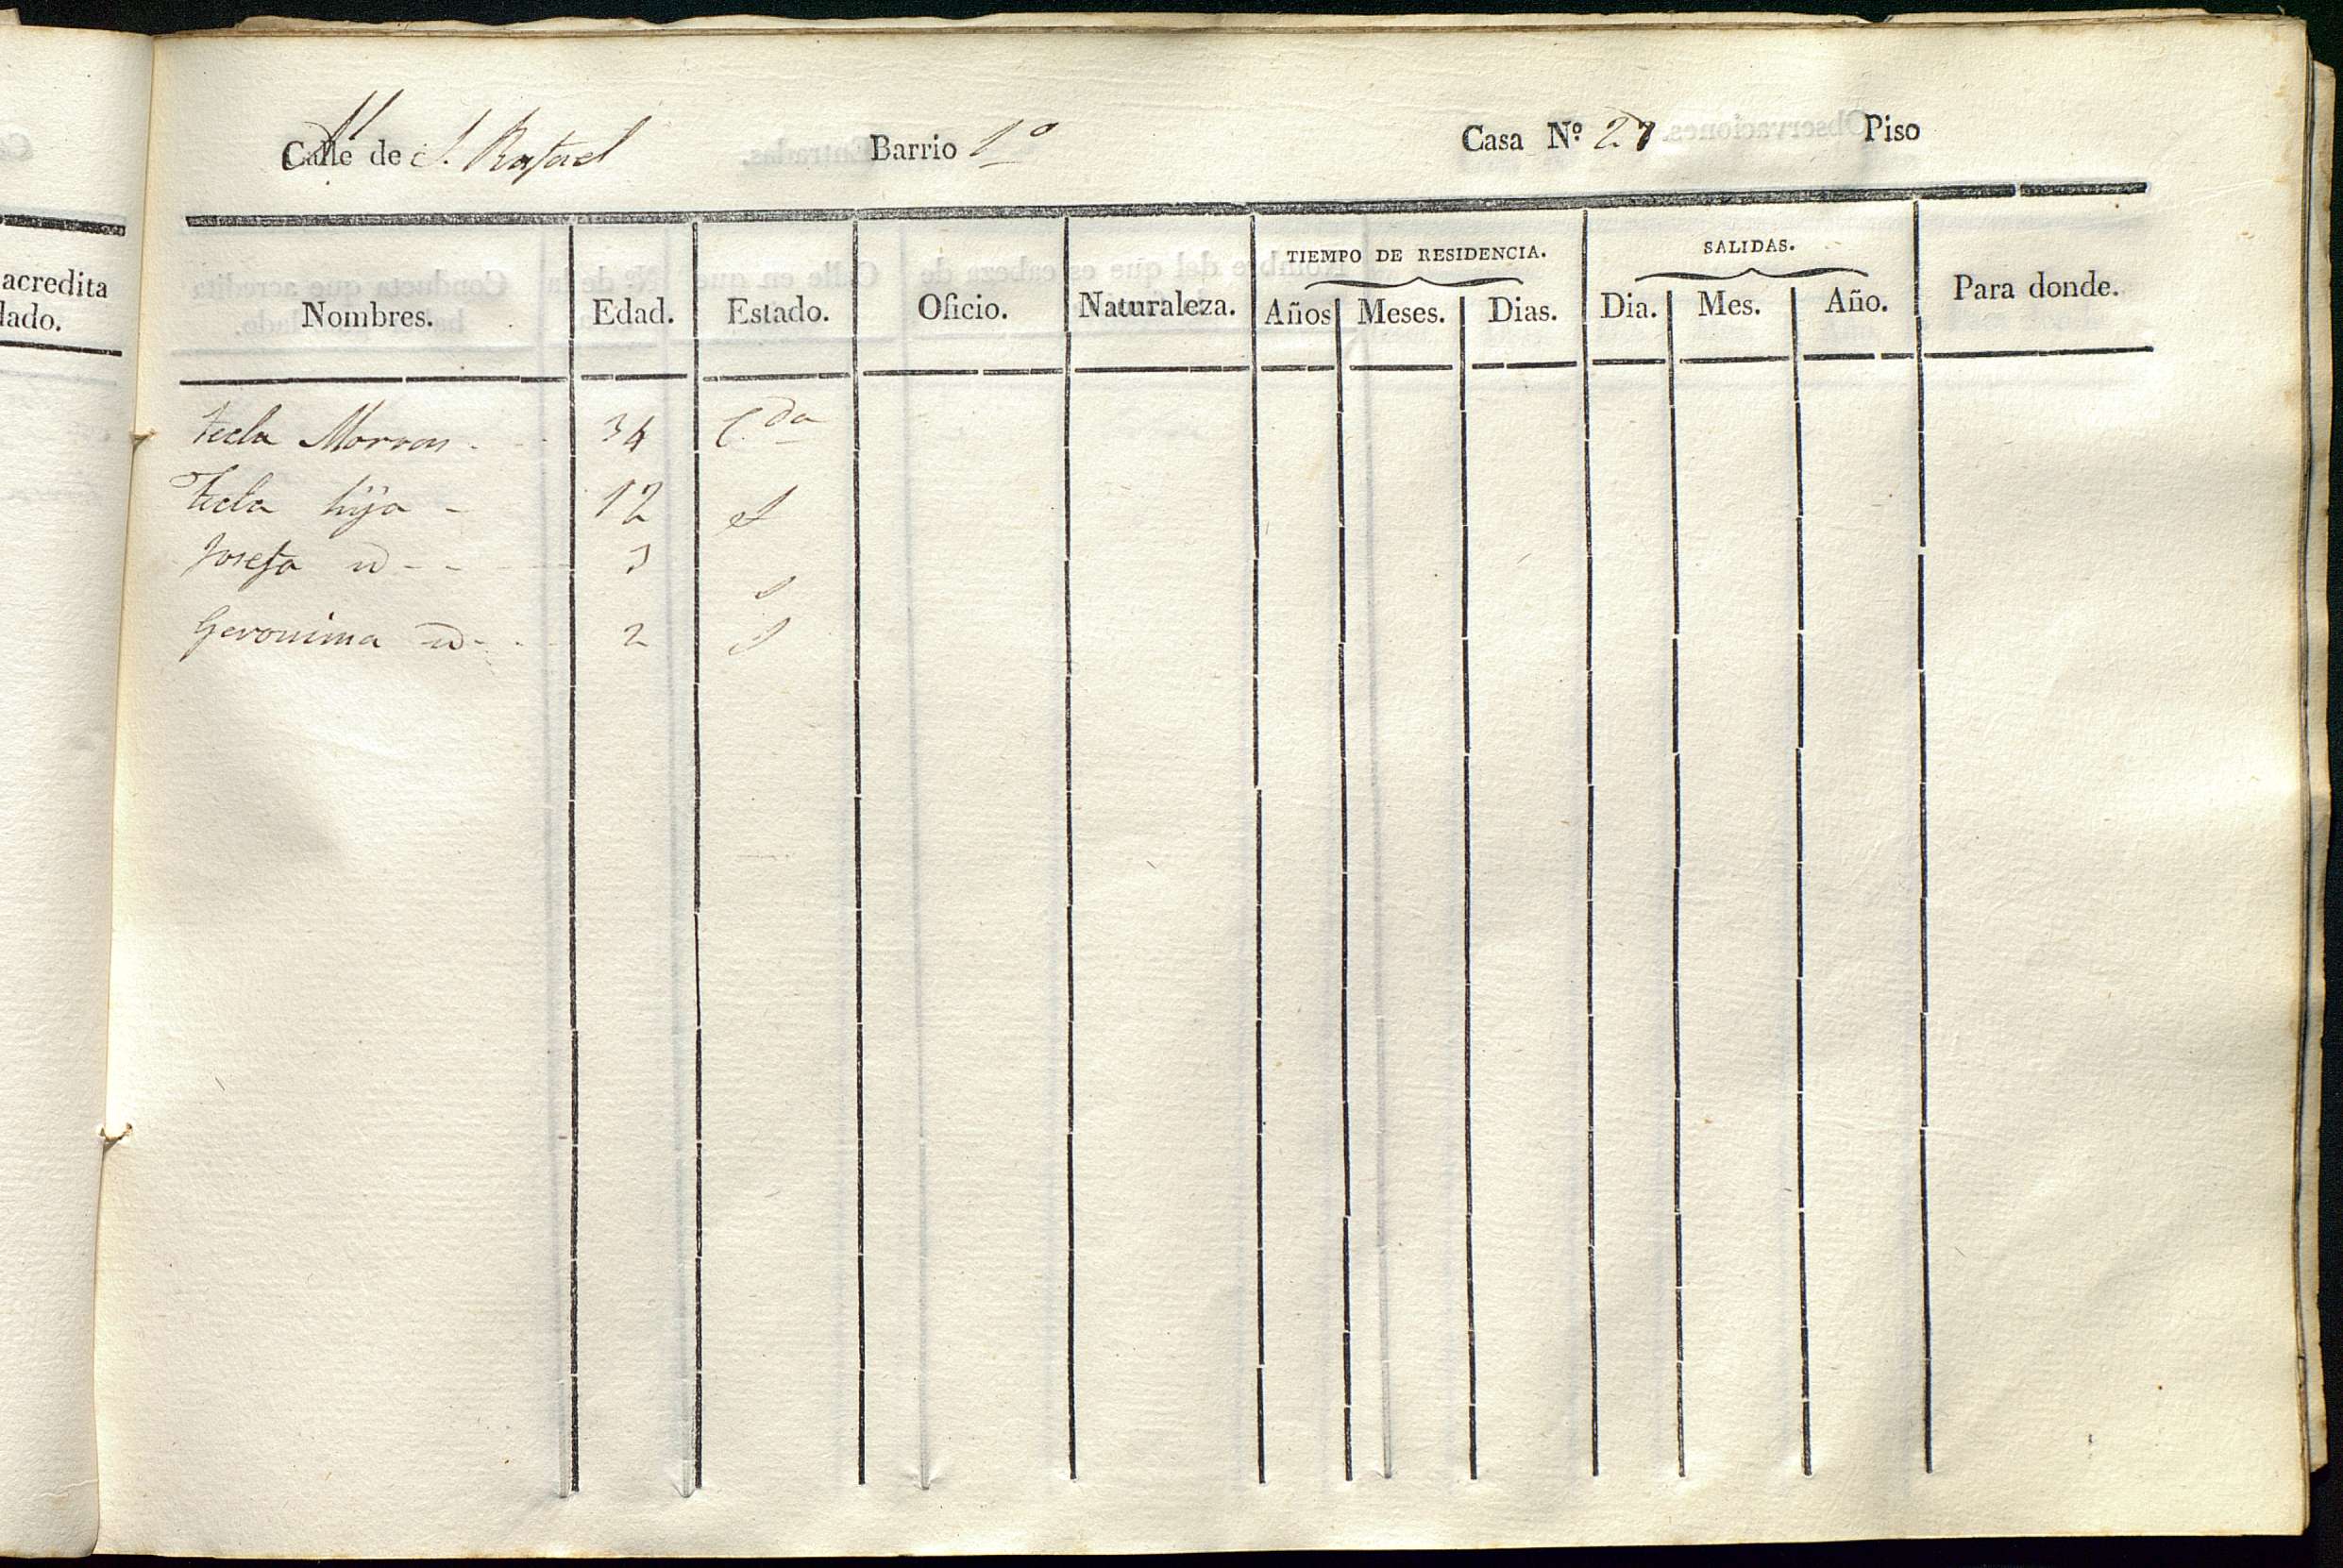 acredita
lado.
Calle de S. Rafael Barrio 1º Casa Nº 27 Piso
TIEMPO DE RESIDENCIA. SALIDAS.
Nombres. Edad. Estado. Oficio. Naturaleza. Años Meses. Dias. Dia. Mes. Año. Para donde.
Tecla Morron - 34 C.da
Tecla hija - 12 S
Josefa id - - 3 S
Geronima id - 2 S